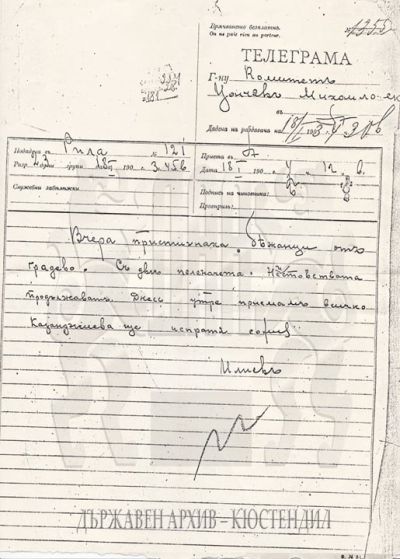 Пренасянето безплатно.
On ne paie rien au porteur.
1355
ТЕЛЕГРАМА
Г-ну Комитетъ
Цончевъ Михайловск
въ
Дадена на раздавача на 18/I 1903
Подадена въ Рила № 121
Разр. думи 18/I 190 3.45 в
Служебни забѣлѣжки:
Приета въ
Дата 18/I 190 ч. м. в.
Подпись на чиновника:
Провѣрилъ:
Вчера пристигнаха бѣжанци отъ
Градево. Съ две пеленачета. Неистовствата
продължаватъ. Днесъ утре приемамъ всичко
Казанджиева ще испратя София
Илиевъ
ДЪРЖАВЕН АРХИВ – КЮСТЕНДИЛ